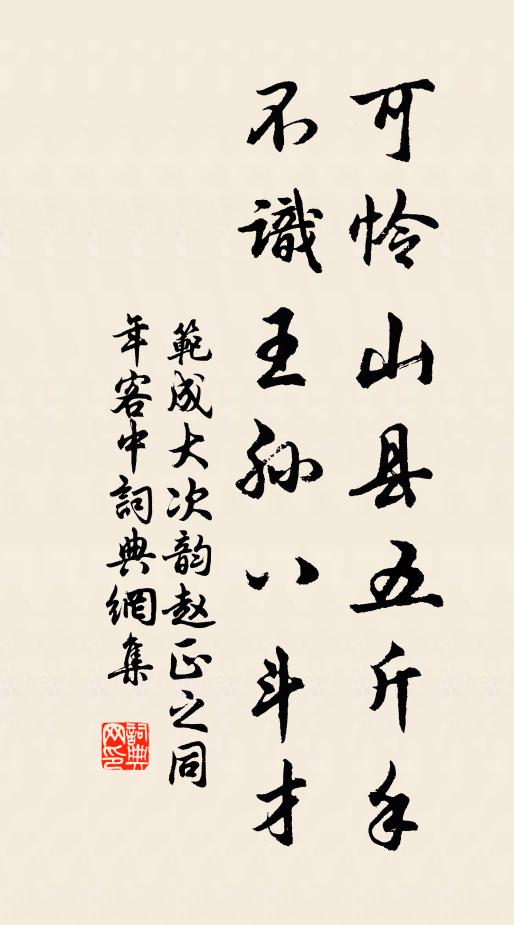 可怜山县五斤手
不識王孙八斗才
範成大次韵赵正之同
年客中詞典網集
詞典
网印